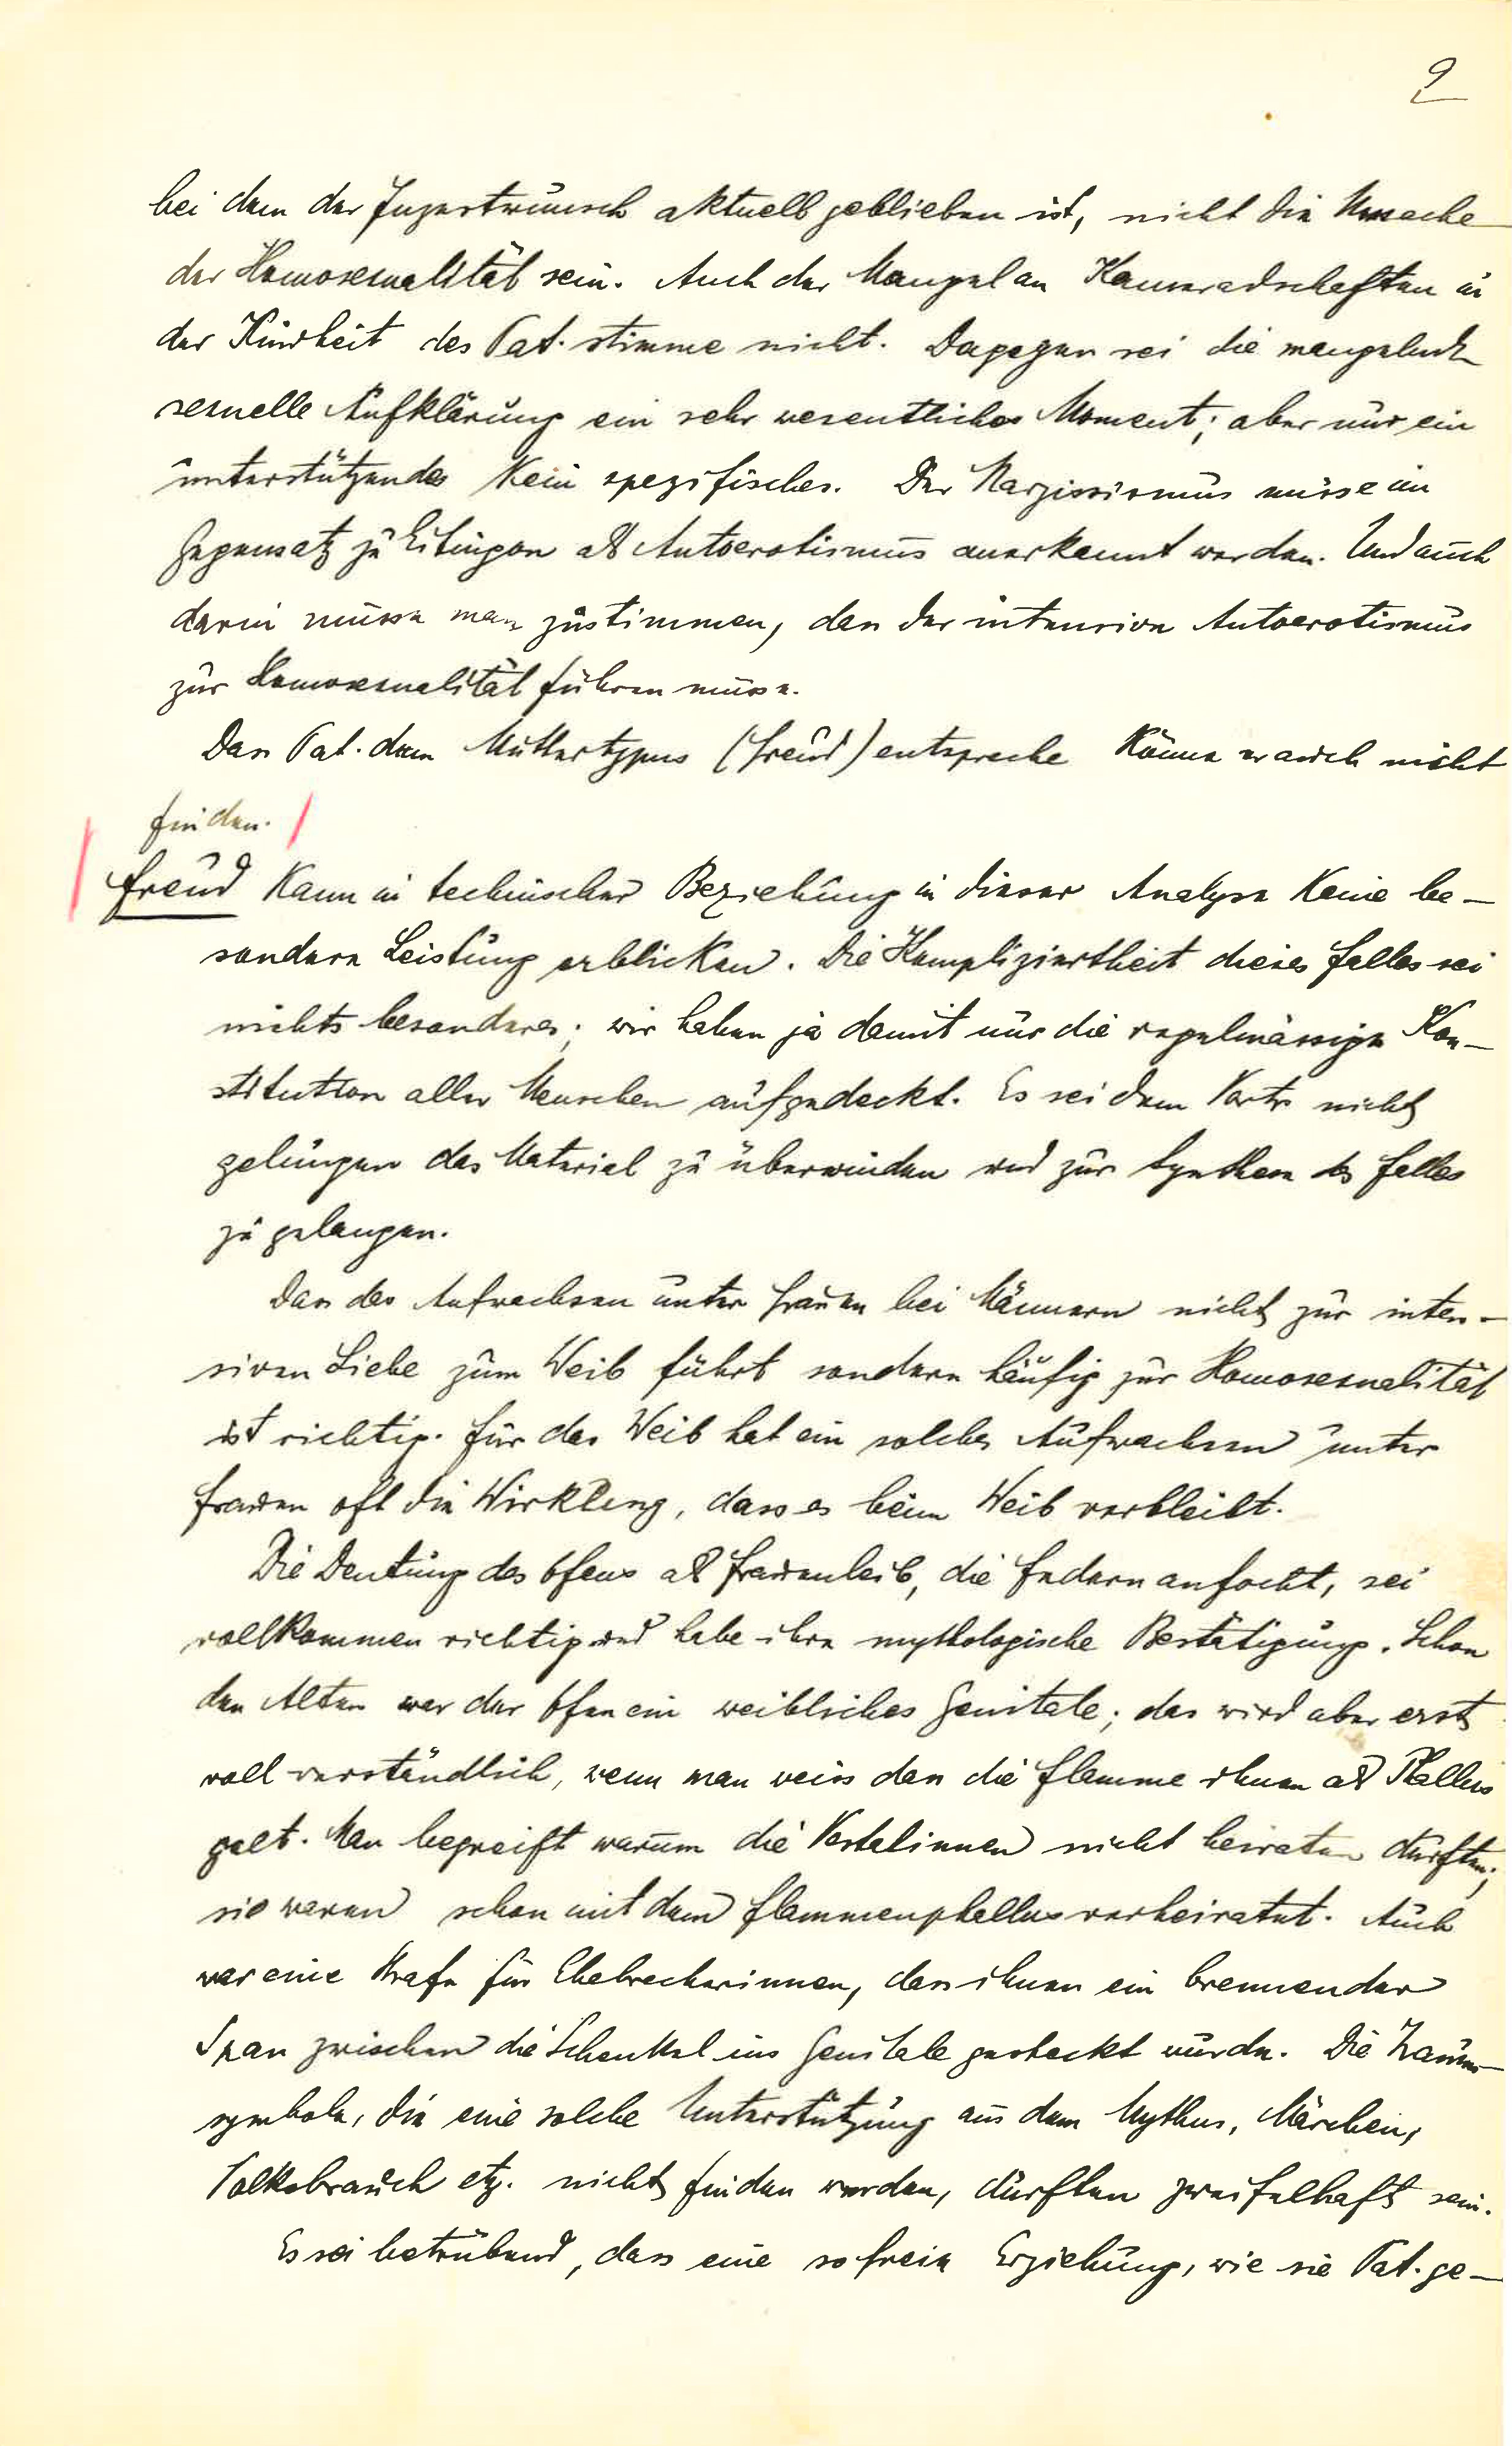 9
bei dem der Inzestwunsch aktuell geblieben ist, nicht die Ursache
der Homosexualität sein. Auch der Mangel an Kameradschaften in
der Kindheit des Pat. stimme nicht. Dagegen sei die mangelnde
sexuelle Aufklärung ein sehr wesentliches Moment; aber nur ein
unterstützendes kein spezifisches. Der Narzissismus müsse im
Gegensatz zu Eitingon als Autoerotismus anerkannt werden. Und auch
darin müsse man zustimmen, dass der intensive Autoerotismus
zur Homosexualität führen müsse.
Dass Pat. dem Muttertypus (Freud) entspreche könne er auch nicht
finden.
Freud kann in technischer Beziehung in dieser Analyse keine be-
sondere Leistung erblicken. Die Kompliziertheit dieses Falles sei
nichts besonderes; wir haben ja damit nur die regelmässige Kon-
stitution aller Menschen aufgedeckt. Es sei dem Vortr nicht
gelungen das Material zu überwinden und zur Synthese des Falles
zu gelangen.
Dass das Aufwachsen unter Frauen bei Männern nicht zur inten-
siven Liebe zum Weib führt sondern häufig zur Homosexualität
ist richtig. Für das Weib hat ein solches Aufwachsen unter
Frauen oft die Wirkung, dass es beim Weib verbleibt.
Die Deutung des Ofens als Frauenleib, die Federn anfocht, sei
vollkommen richtig und habe ihre mythologische Bestätigung. Schon
den Alten war der Ofen ein weibliches Genitale; das wird aber erst
voll verständlich, wenn man weiss dass die Flamme ihnen als Phallus
galt. Man begreift warum die Vestalinnen nicht heiraten durften;
sie waren schon mit dem Flammenphallus verheiratet. Auch
war eine Strafe für Ehebrecherinnen, dass ihnen ein brennender
Span zwischen die Schenkel ins Genitale gesteckt wurde. Die Traum-
symbole, die eine solche Unterstützung aus dem Mythus, Märchen,
Volksbrauch etz. nicht finden werden, dürften zweifelhaft sein.
Es sei betrübend, dass eine so freie Erziehung, wie sie Pat. ge-